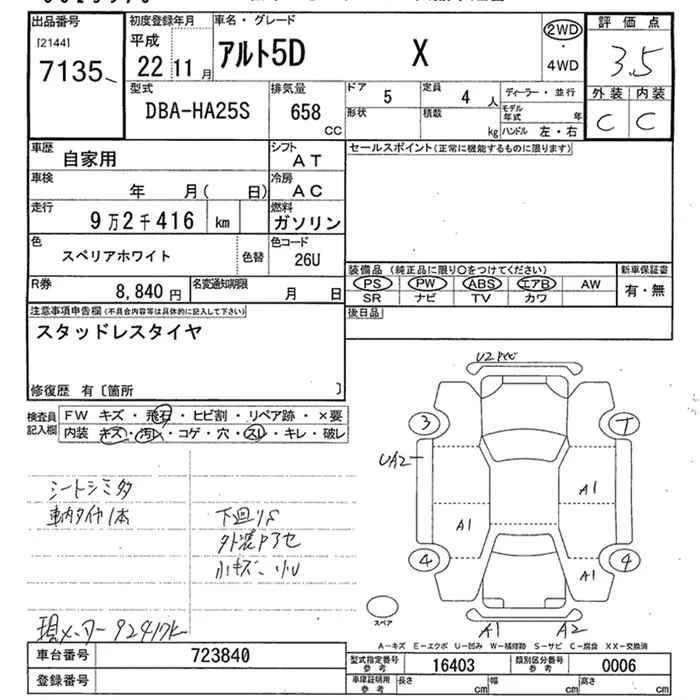 出品番号 初度登録年月 車名・グレード 評価点
[2144] 平成 アルト5D X 2WD ・ 4WD 3.5
7135 22年11月
外装 内装
C C
型式 排気量 ドア 定員 ディーラー・並行
DBA-HA25S 658 CC 5 4人 モデル年式 年
形状 積数 kg ハンドル 左・右
車歴 シフト セールスポイント(正常に機能するものに限ります)
自家用 AT
車検 冷房
年 月( 日) AC
走行 燃料
9万2千416 km ガソリン
色 色コード
スペリアホワイト 色替 26U
装備品 (純正品に限り○をつけてください) 新車保証書
R券 名変通知期限 PS PW ABS エアB AW 有・無
8,840円 月 日 SR ナビ TV カワ
注意事項申告欄(不具合内容等は具体的に記入して下さい) 後日品
スタッドレスタイヤ
修復歴 有〔箇所 〕
検査員記入欄 FW キズ・飛石・ヒビ割・リペア跡・×要
内装 キズ・汚レ・コゲ・穴・スレ・キレ・破レ
シートシミ多
車内タイヤ1本 下回りS
小キズ
現メーター92417K
U2
3
UA2
A1
A1
4 4
A1
スペア A1 A2
A-キズ E-エクボ U-凹み W-補修跡 S-サビ C-腐食 XX-交換済
車台番号 723840 型式指定番号 参考 16403 類別区分番号 参考 0006
登録番号 車庫証明用 参考 長さ cm 幅 cm 高さ cm